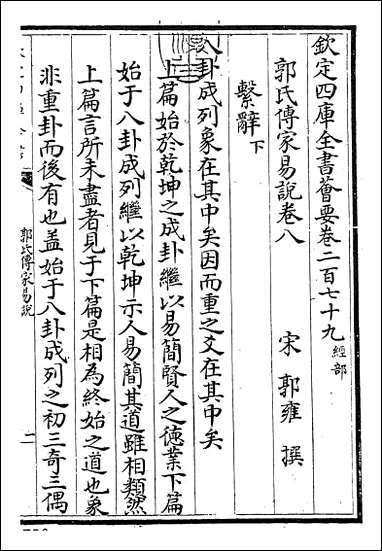 欽定四庫全書薈要卷二百七十九經部
郭氏傳家易說卷八
宋 郭雍 撰
繫辭下
八卦成列象在其中矣因而重之爻在其中矣
上篇始於乾坤之成卦繼以易簡賢人之德業下篇
始于八卦成列繼以乾坤示人易簡其道雖相類然
上篇言所未盡者見于下篇是相為終始之道也象
非重卦而後有也盖始于八卦成列之初三奇三偶
郭氏傳家易說
一